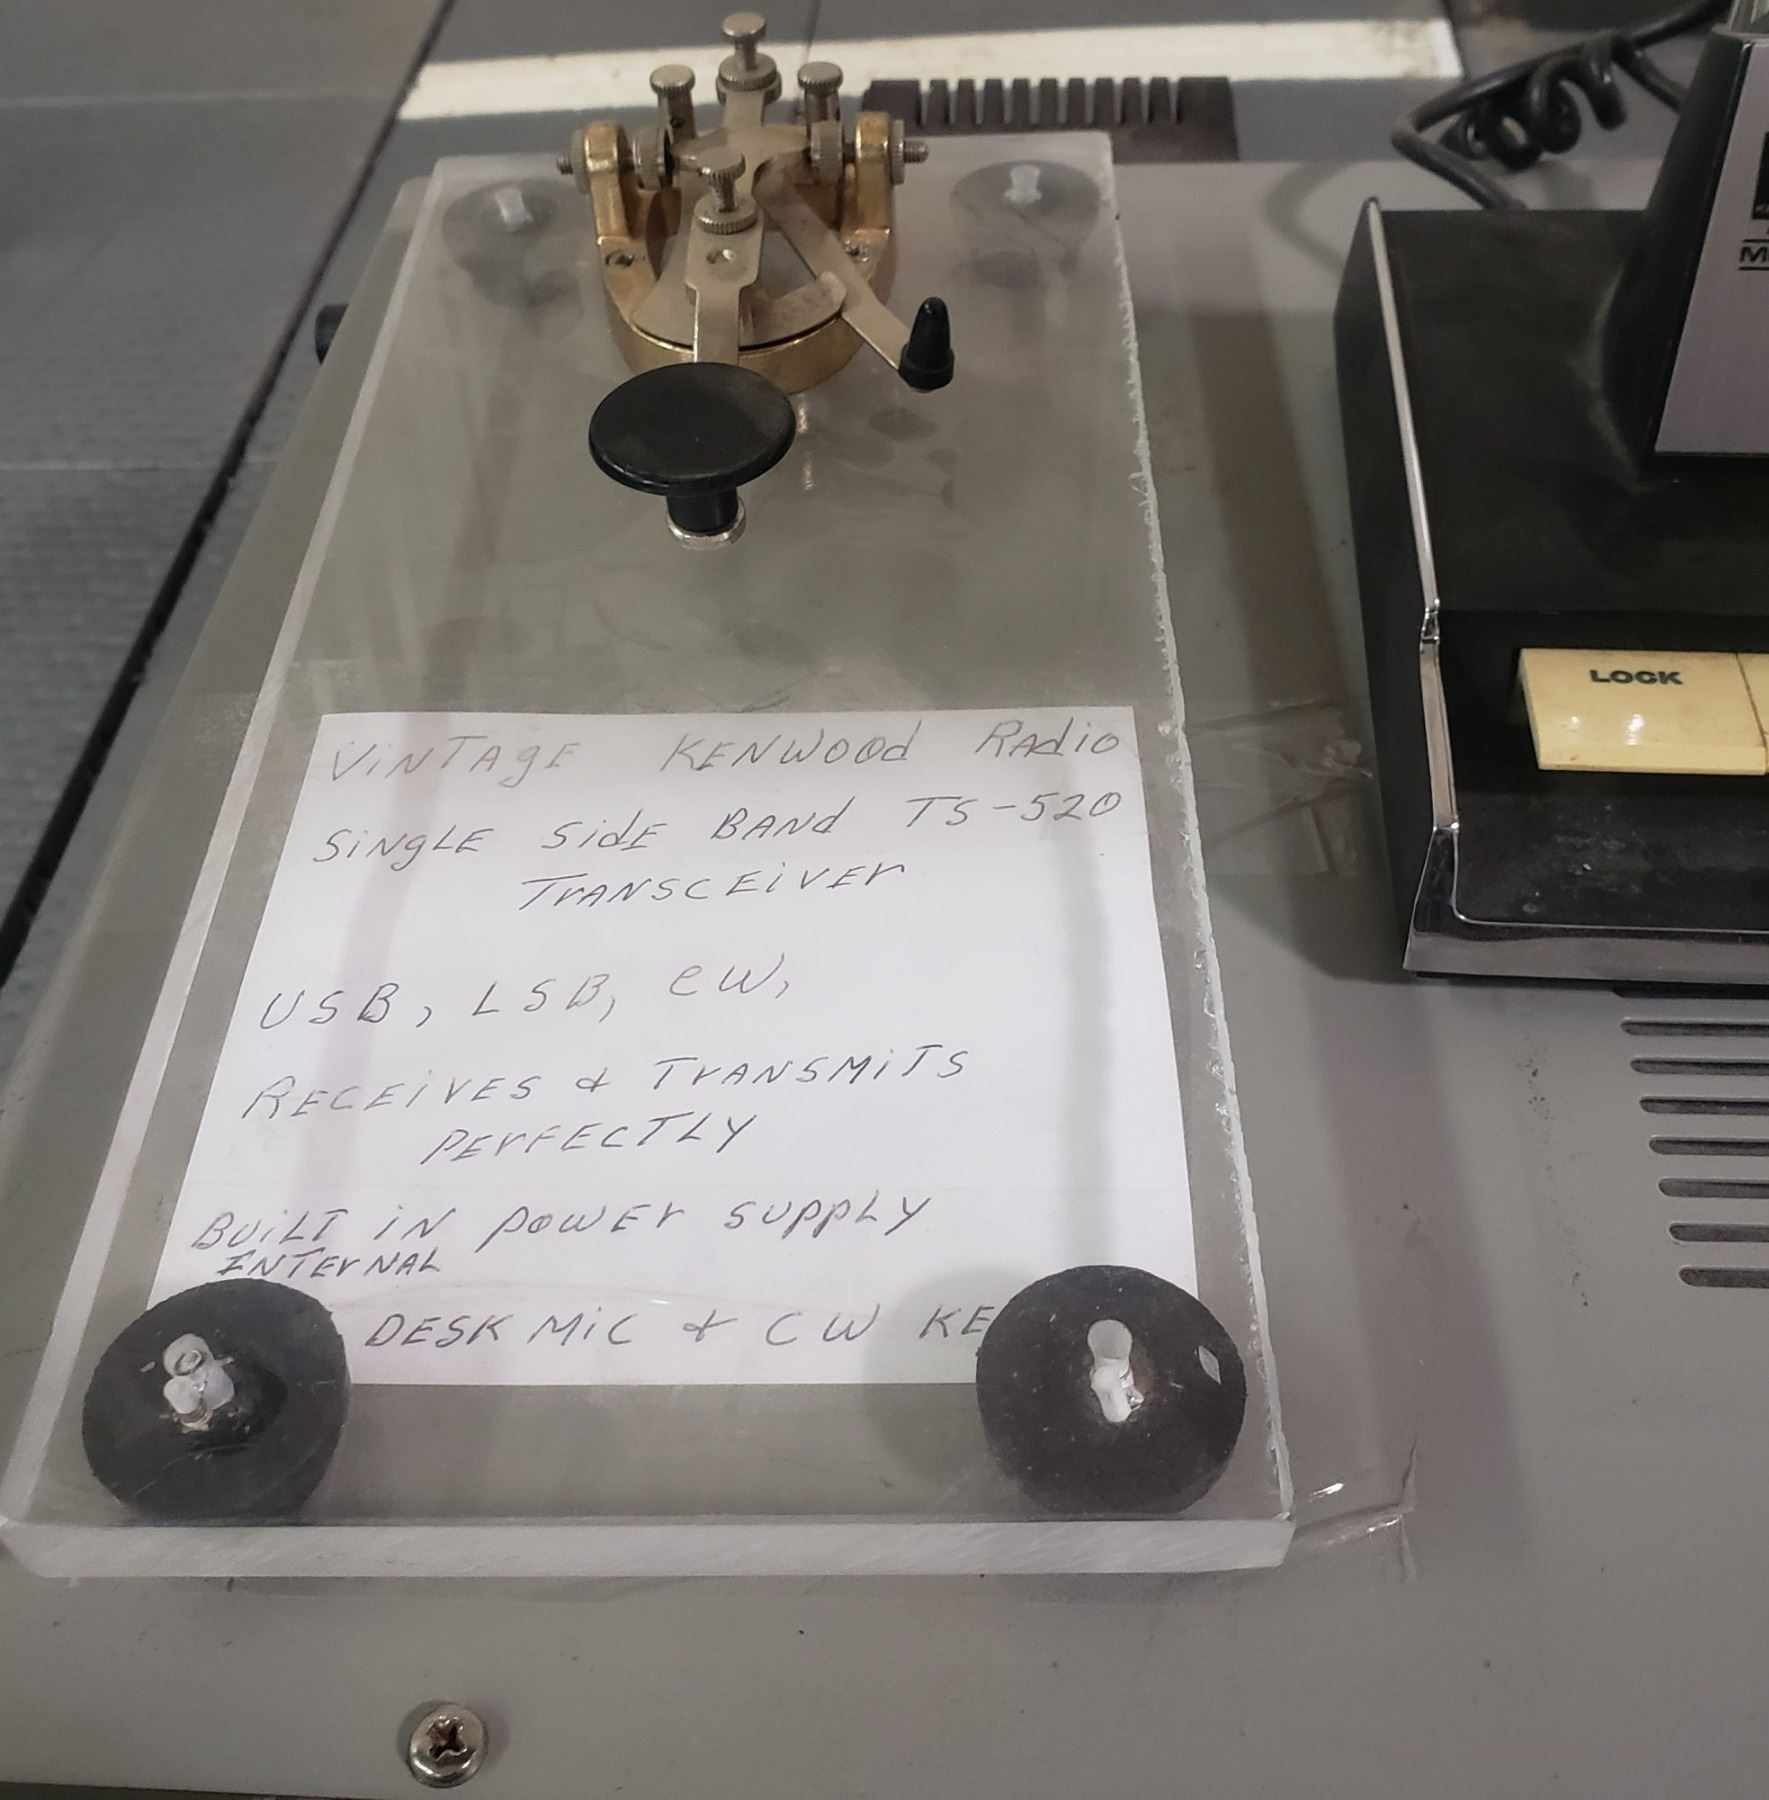 VINTAgE KENWOOd Radio
SiNgLE SidE BANd TS-520
TrANSCEiVEr
USB, LSB, CW,
RECEiVES & TrANSMiTS
PErFECTLY
BUiLT iN POWEr SUPPLY
INTErNAL
DESK MiC & CW KE
LOCK